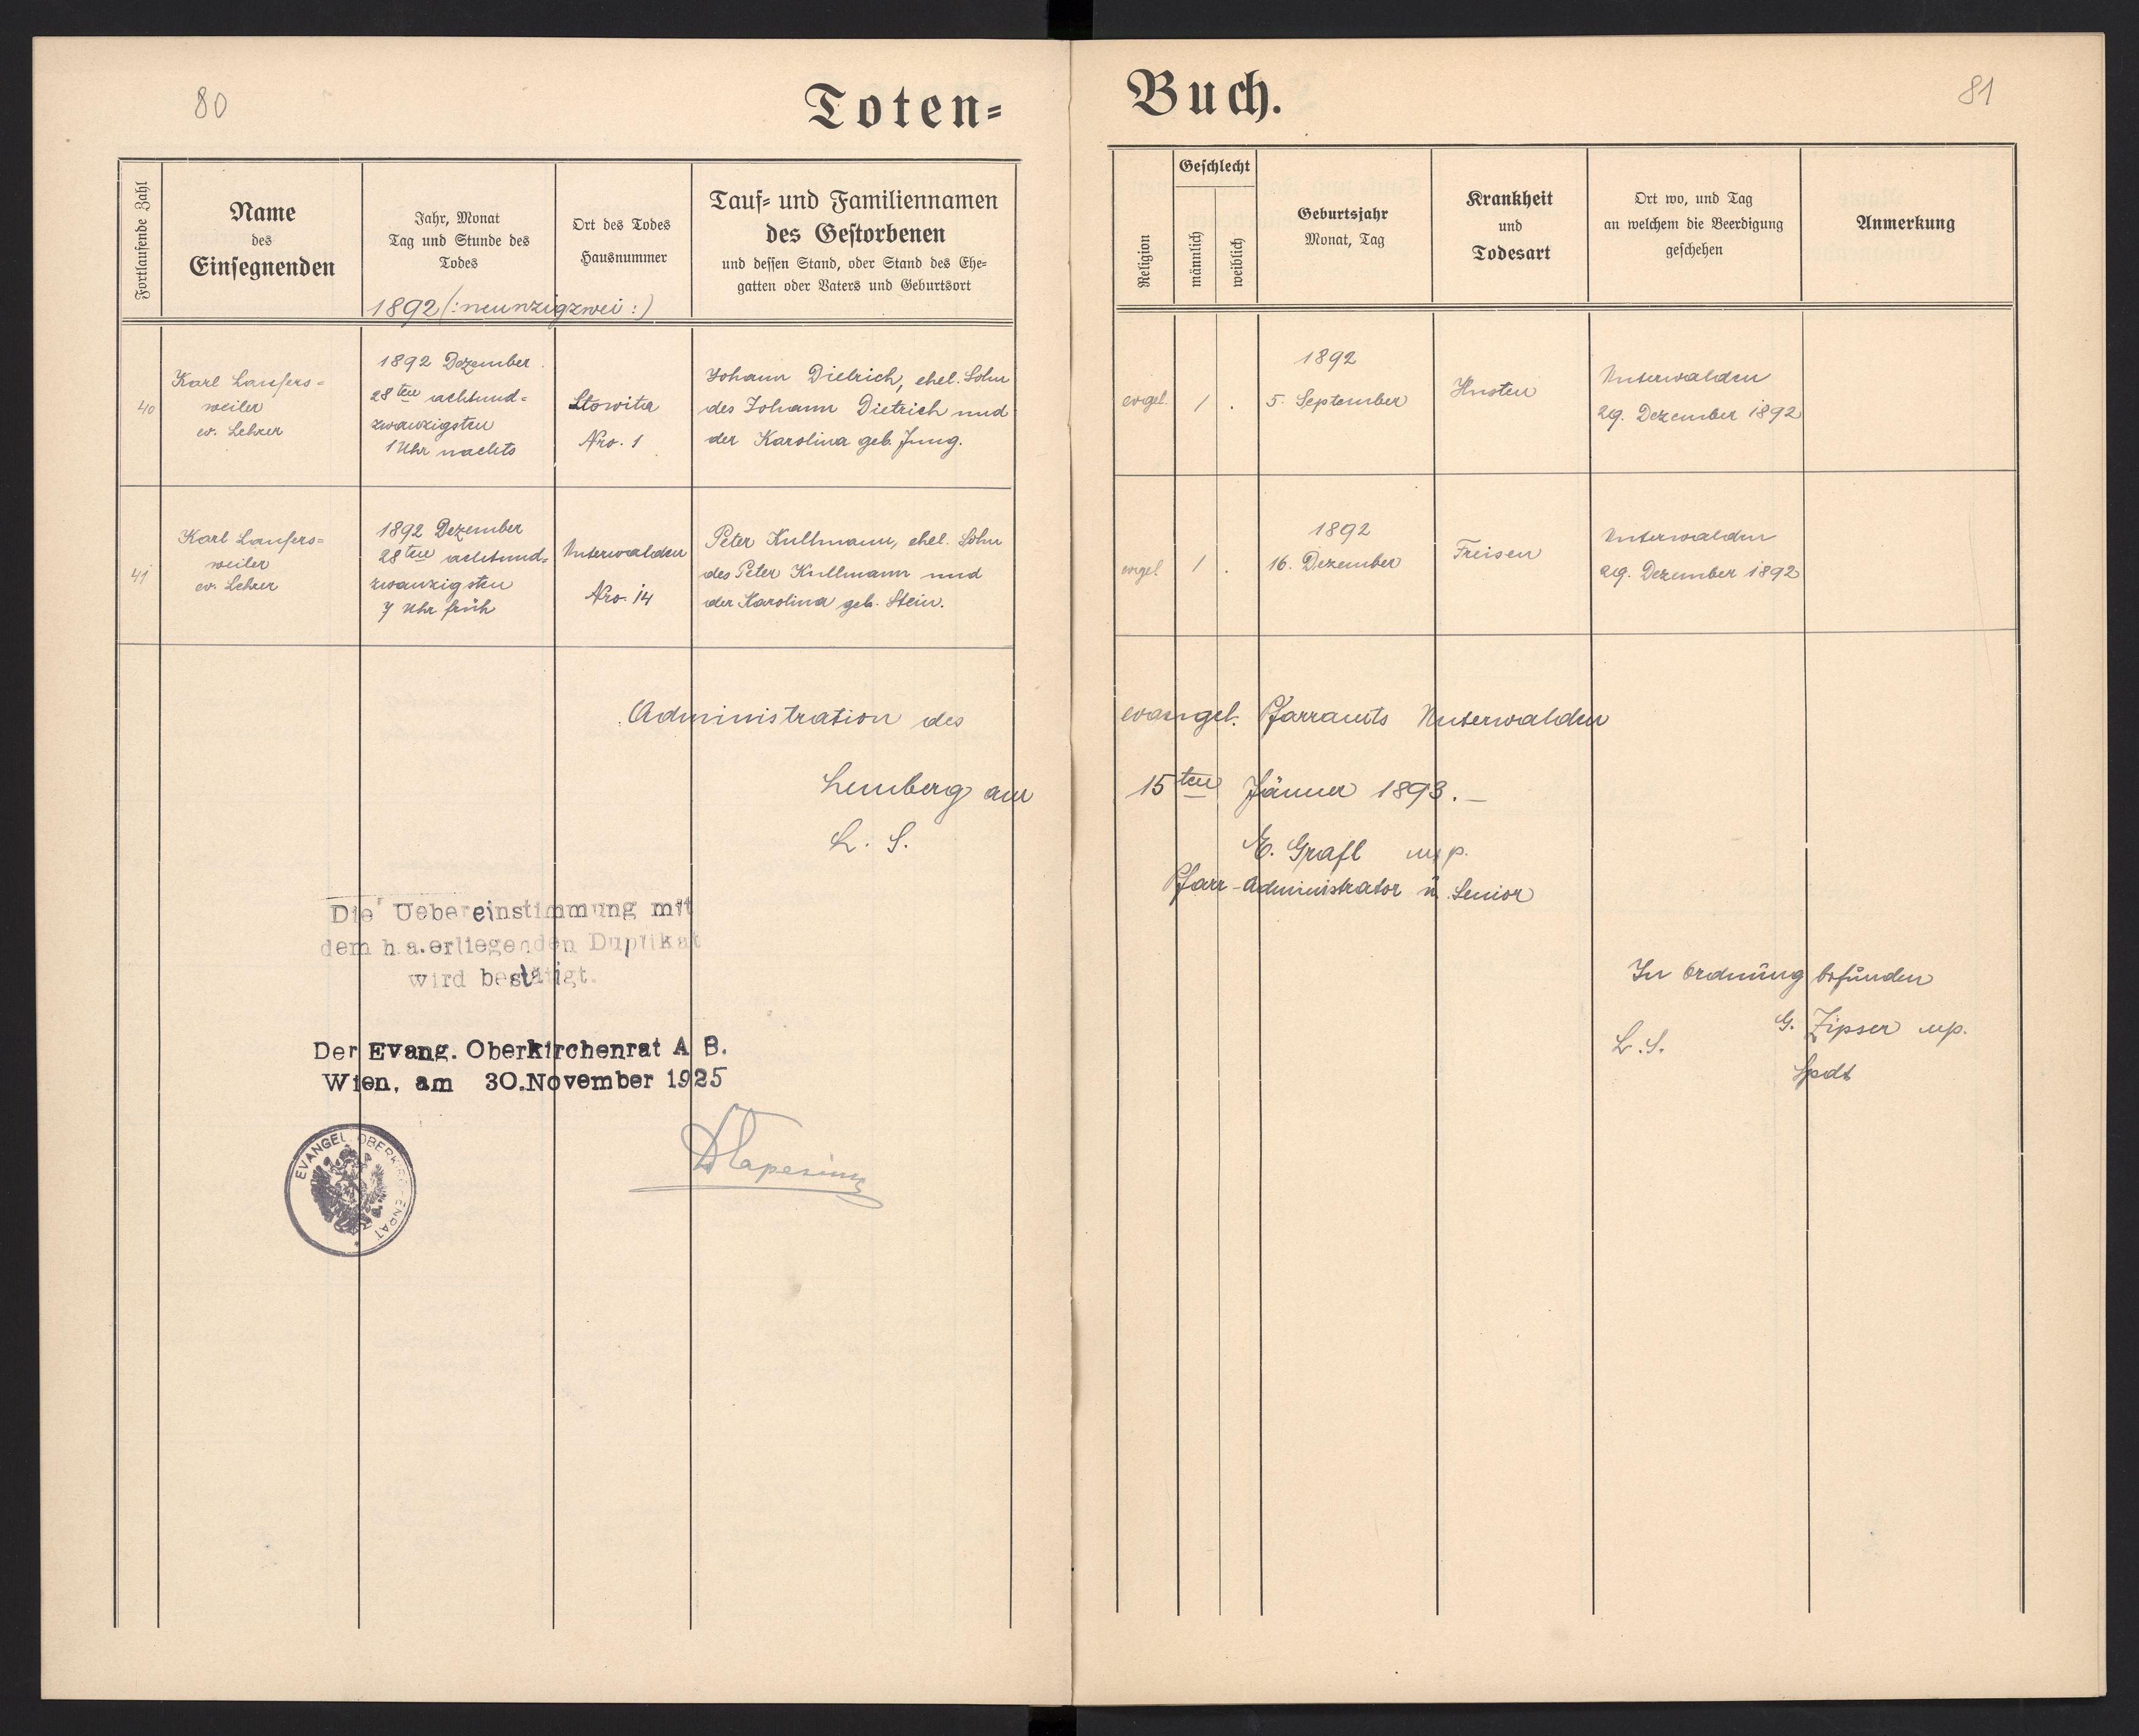 80
Toten-
Fortlaufende Zahl
Name
des
Einsegnenden
Jahr, Monat
Tag und Stunde des
Todes
Ort des Todes
Hausnummer
Tauf- und Familiennamen
des Gestorbenen
und dessen Stand, oder Stand des Ehe-
gatten oder Vaters und Geburtsort
1892 (: neunzigzwei :)
40
Karl Laufers-
weiler
ev. Lehrer
1892 Dezember
28ten achtund-
zwanzigsten
1 Uhr nachts
Stowita
Nro. 1
Johann Dietrich, ehel. Sohn
des Johann Dietrich und
der Karolina geb. Jung.
41
Karl Laufers-
weiler
ev. Lehrer
1892 Dezember
28ten achtund-
zwanzigsten
7 Uhr früh
Unterwalden
Nro. 14
Peter Kullmann, ehel. Sohn
des Peter Kullmann und
der Karolina geb. Stein.
Administration des
Lemberg am
L. S.
Die Uebereinstimmung mit
dem h.a.erliegenden Duplikat
wird bestätigt.
Der Evang. Oberkirchenrat A B.
Wien, am 30.November 1925
EVANGEL. OBERKIRCHENRAT
Buch.
81
Religion
Geschlecht
männlich
weiblich
Geburtsjahr
Monat, Tag
Krankheit
und
Todesart
Ort wo, und Tag
an welchem die Beerdigung
geschehen
Anmerkung
evgel.
1 .
1892
5. September
Husten
Unterwalden
29. Dezember 1892
evgel.
1 .
1892
16. Dezember
Freisen
Unterwalden
29. Dezember 1892
evangel. Pfarramts Unterwalden
15ten Jänner 1893.–
E. Grafl mp.
Pfarr-Administrator u. Senior
In Ordnung befunden
G. Zipser mp.
L.S.
Spdt